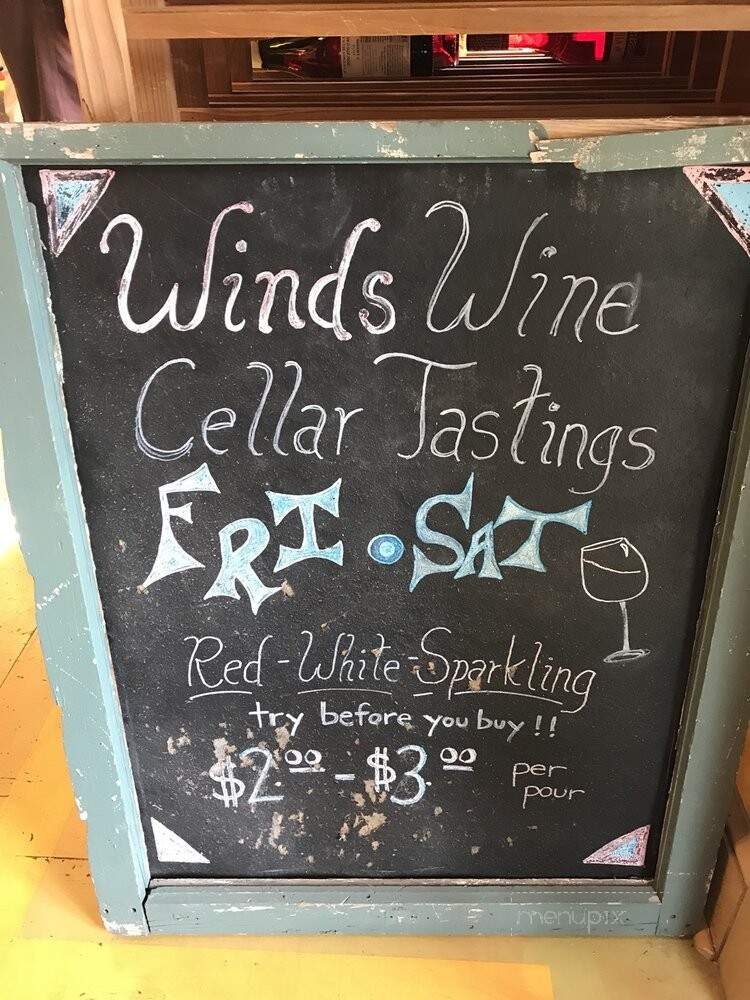 Winds Wine
Cellar Tastings
FRI • SAT
Red - White - Sparkling
try before you buy !!
$2.00 - $3.00 per pour
menupix